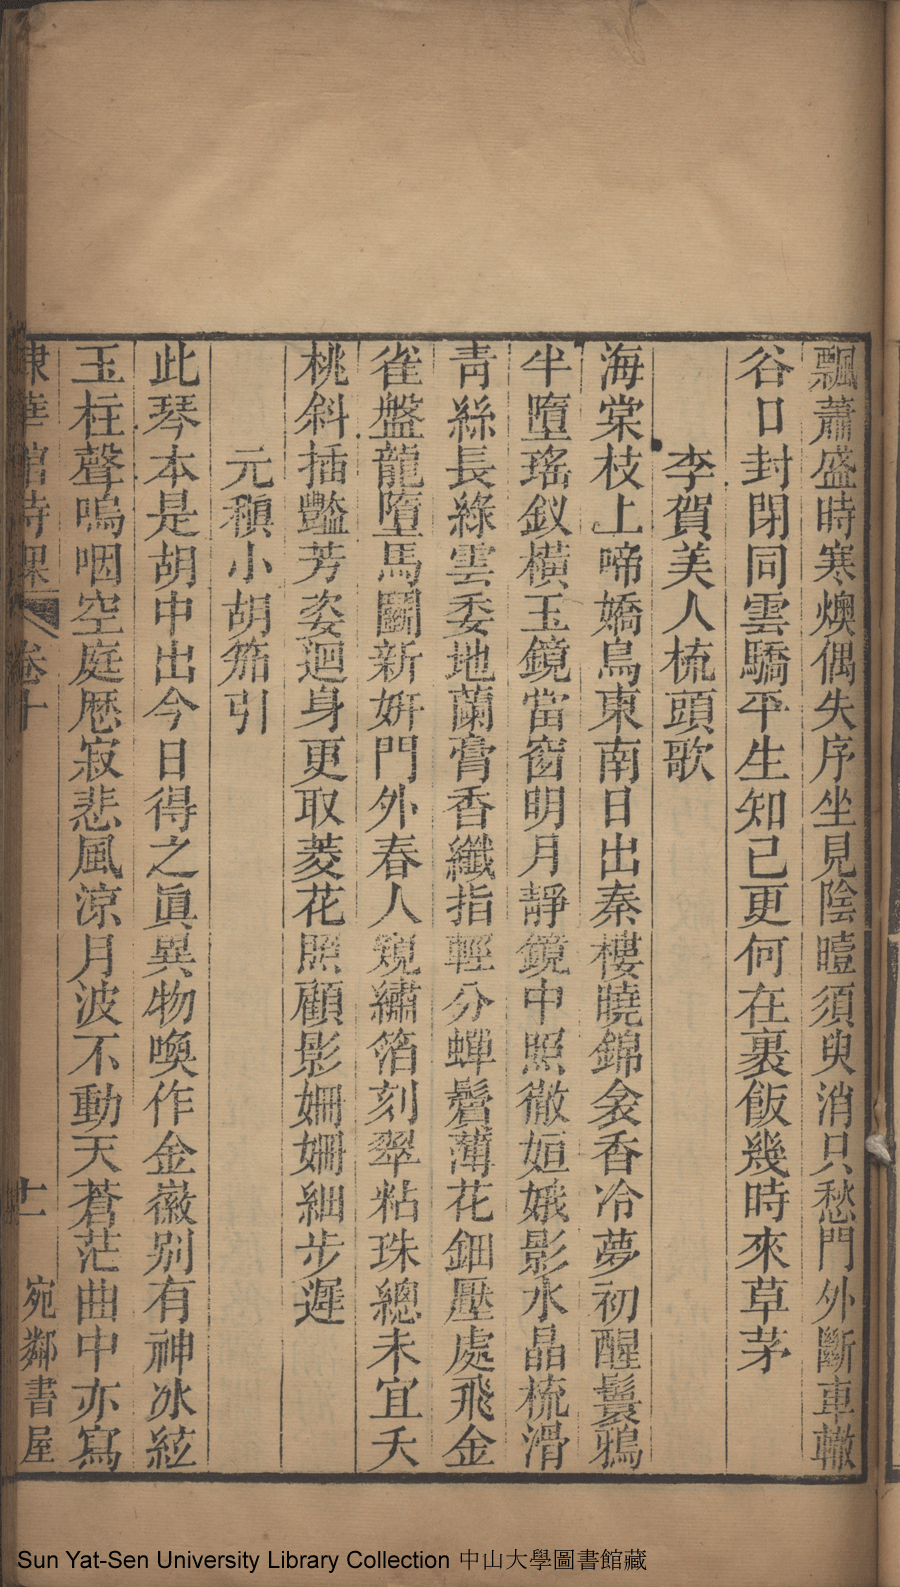 飄蕭盛時寒燠偶失序坐見陰曀須臾消只愁門外斷車轍
谷口封閉同雲驕平生知己更何在裹飯幾時來草茅
李賀美人梳頭歌
海棠枝上啼嬌鳥東南日出秦樓曉錦衾香冷夢初醒鬟鴉
半墮瑤釵橫玉鏡當窗明月靜鏡中照徹姮娥影水晶梳滑
青絲長綠雲委地蘭膏香纖指輕分蟬鬢薄花鈿壓處飛金
雀盤龍墮馬鬭新妍門外春人窺繡箔刻翠粘珠總未宜夭
桃斜插豔芳姿迴身更取菱花照顧影姍姍細步遲
元稹小胡笳引
此琴本是胡中出今日得之眞異物喚作金徽别有神冰絃
玉柱聲嗚咽空庭厯寂悲風涼月波不動天蒼茫曲中亦寫
棣華館詩課 卷十 十一 宛鄰書屋
Sun Yat-Sen University Library Collection 中山大學圖書館藏